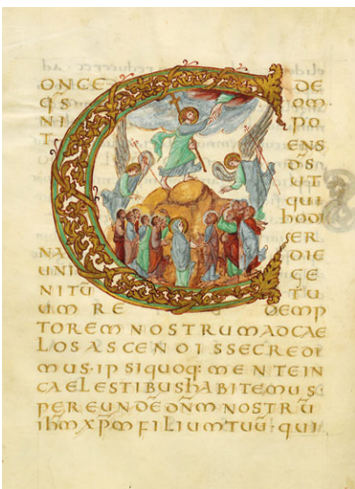 CONCE DE
QS OM
NI PO
T ENS
D̄S
UT
qui
hodi
ER
NA DIE
UNI GE
NITŪ TU
UM RE DEMP
TOREM NOSTRUM AD CAE
LOS ASCENDISSE CREDI
MUS· IPSI QUOQ: MENTE IN
CAELESTIBUS hABITEMUS
PER EUNDĒ DN̄M NOSTRŪ
IhM̄ XPM̄ FILIUM TUŪ· QUI